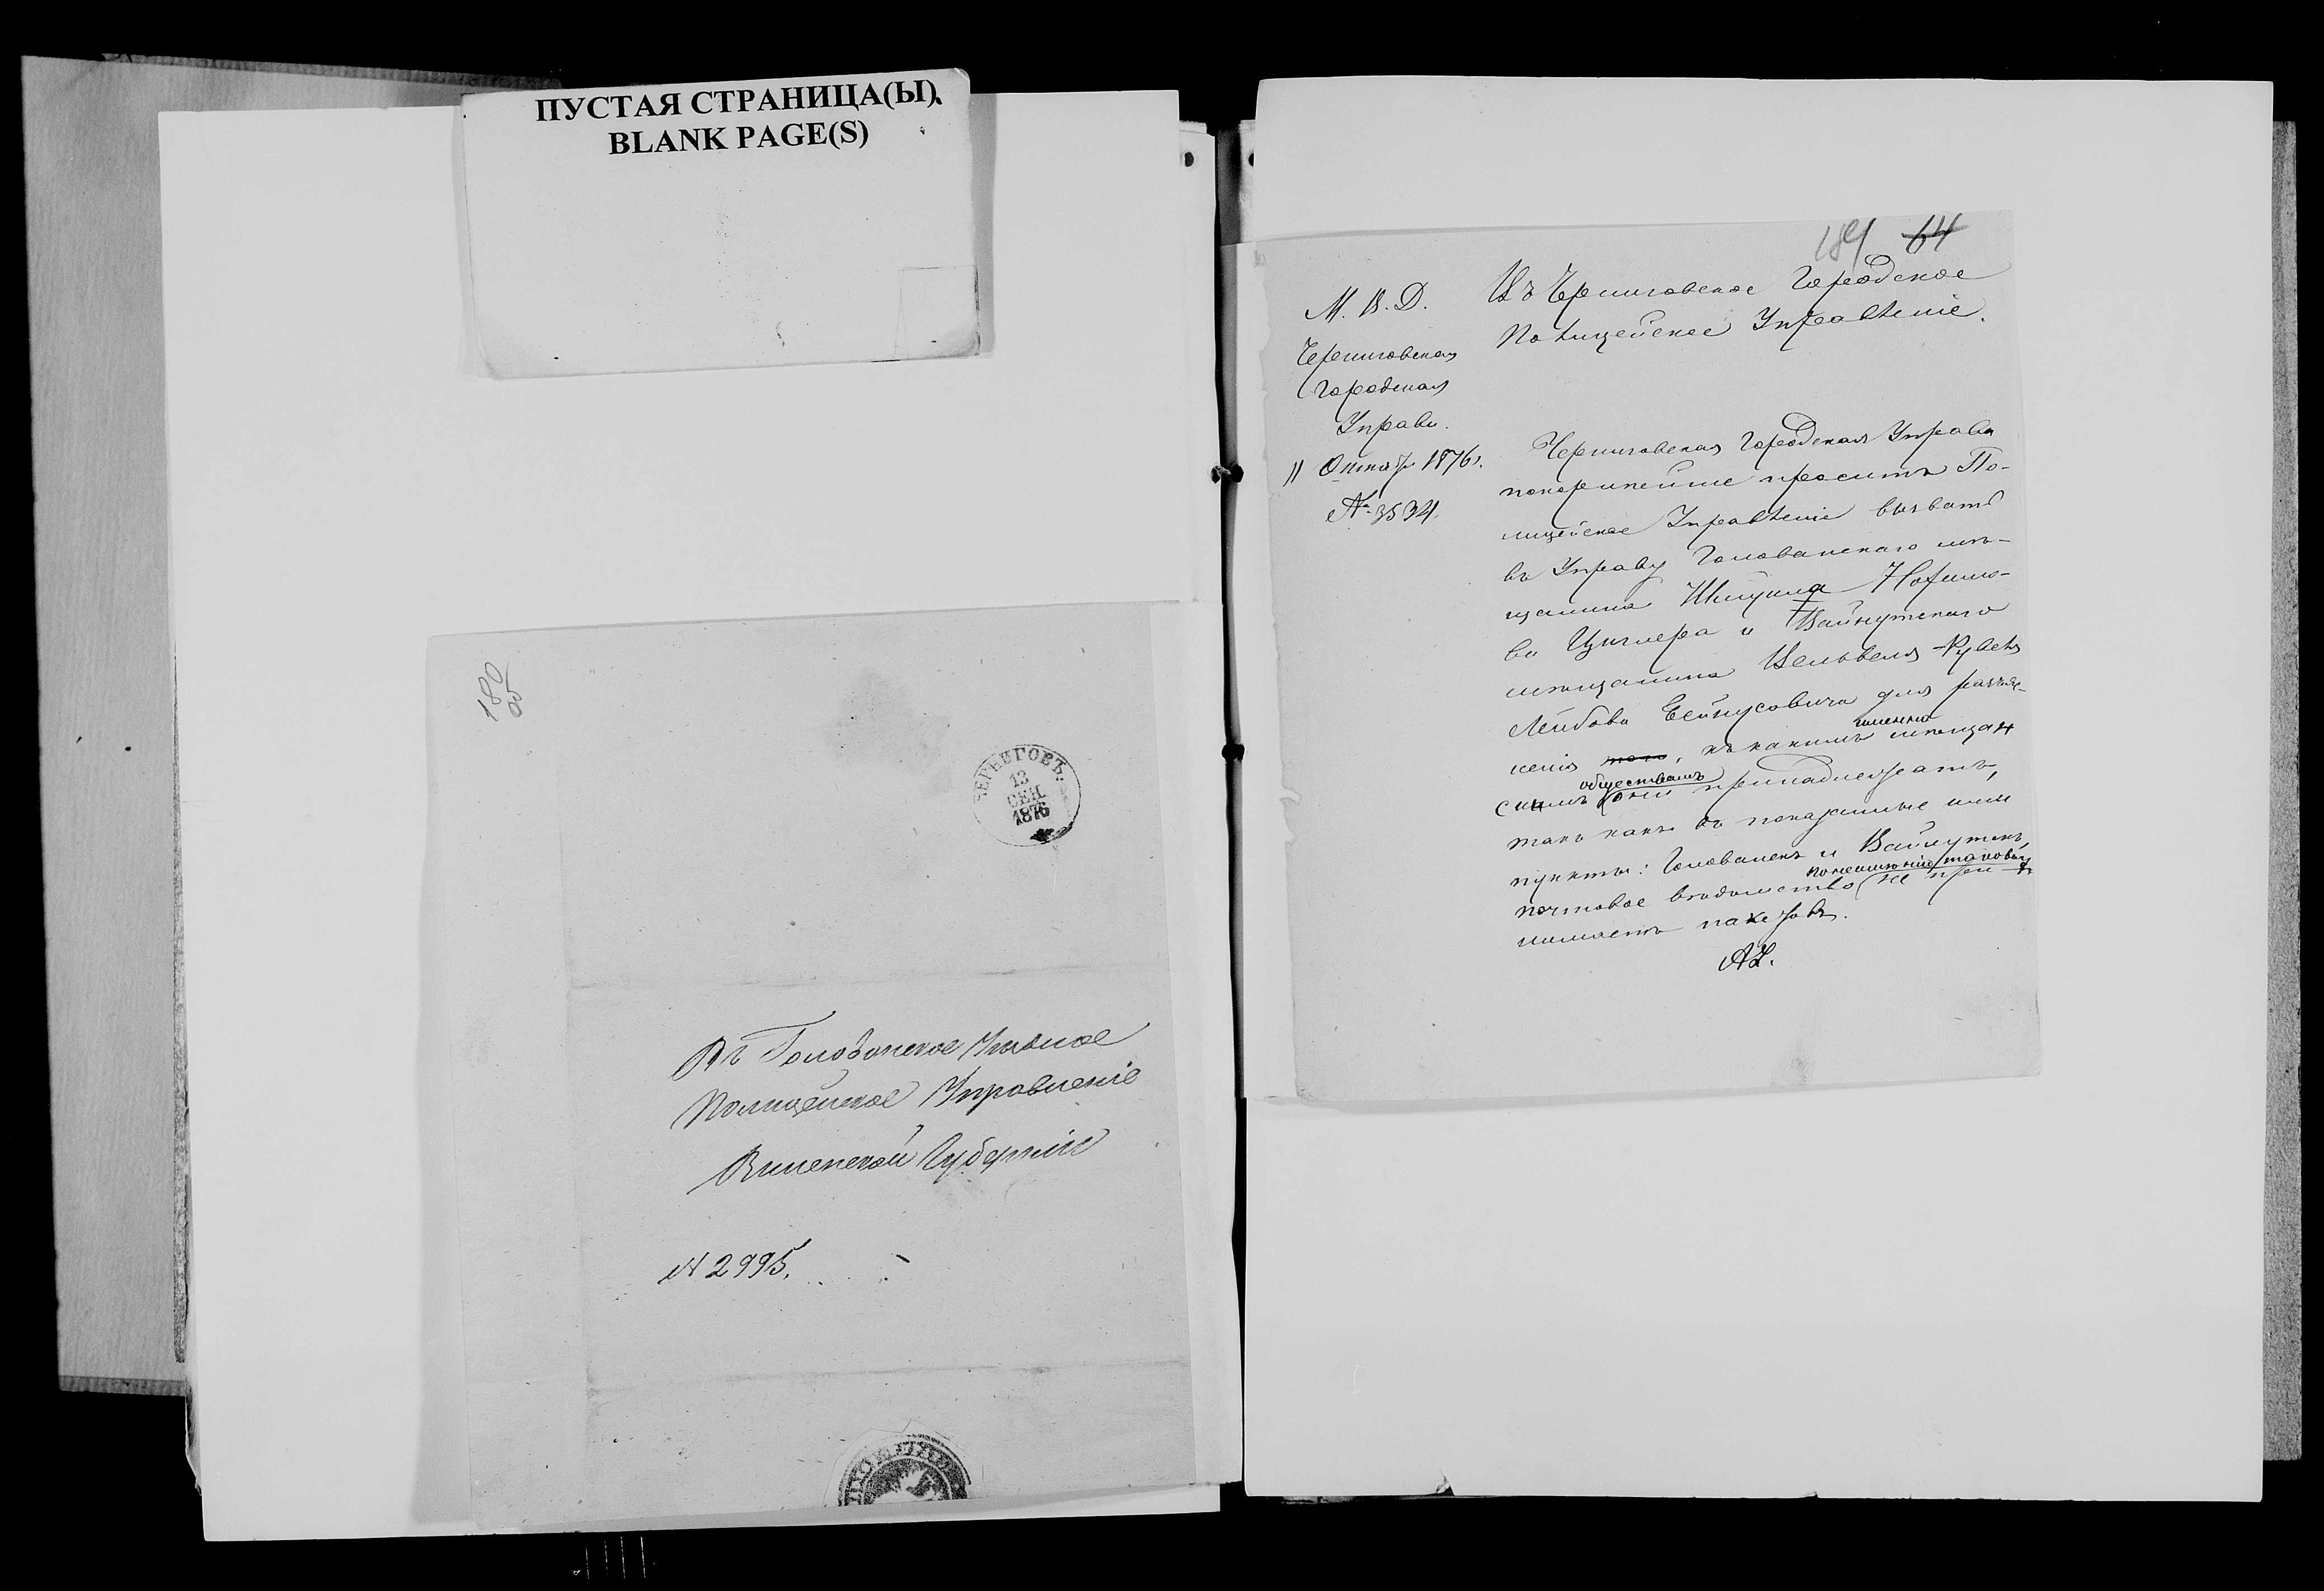 ПУСТАЯ СТРАНИЦА(Ы).
BLANK PAGE(S)
180
об
ЧЕРНИГОВЪ.
13
СЕН.
1876
Въ Голованское Уѣздное
Полицейское Управленіе
Виленской Губерніи
№ 2995.
181 64
М. В. Д.
Черниговская
Городская
Управа.
11 Октяб 1876 г.
№ 3534.
Въ Черниговское Городское
Полицейское Управленіе.
Черниговская Городская Управа
покорнѣйше проситъ По-
лицейское Управленіе вызвать
въ Управу Голованскаго мѣ-
щанина Шмуила Нохимо-
ва Циглера и Вайнутскаго
мѣщанина Вельвеля-Рувеля
Лейбова Бейнусовича для разъяс-
ненія того, къ какимъ именно мѣщан
скимъ обществамъ они принадлежатъ,
такъ какъ въ показанные ими
пункты: Голованскъ и Вайнутскъ,
почтовое вѣдомство по неимѣнію таковыхъ не при-
нимаетъ пакетовъ.